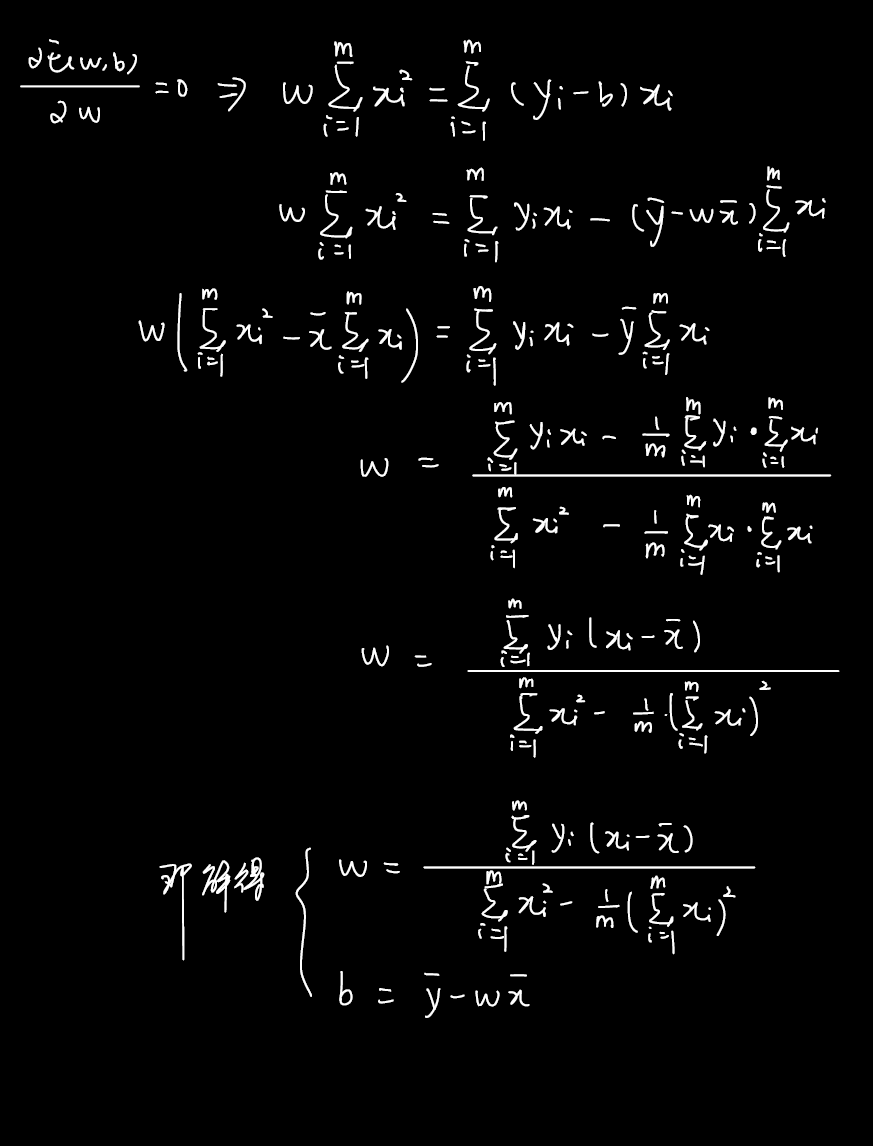 ∂E(w,b)/∂w = 0 ⇒ w ∑_{i=1}^{m} x_i^2 = ∑_{i=1}^{m} (y_i − b) x_i
w ∑_{i=1}^{m} x_i^2 = ∑_{i=1}^{m} y_i x_i − (ȳ − w x̄) ∑_{i=1}^{m} x_i
w ( ∑_{i=1}^{m} x_i^2 − x̄ ∑_{i=1}^{m} x_i ) = ∑_{i=1}^{m} y_i x_i − ȳ ∑_{i=1}^{m} x_i
w = (∑_{i=1}^{m} y_i x_i − 1/m ∑_{i=1}^{m} y_i · ∑_{i=1}^{m} x_i) / (∑_{i=1}^{m} x_i^2 − 1/m ∑_{i=1}^{m} x_i · ∑_{i=1}^{m} x_i)
w = (∑_{i=1}^{m} y_i (x_i − x̄)) / (∑_{i=1}^{m} x_i^2 − 1/m · (∑_{i=1}^{m} x_i)^2)
解得 { w = (∑_{i=1}^{m} y_i (x_i − x̄)) / (∑_{i=1}^{m} x_i^2 − 1/m (∑_{i=1}^{m} x_i)^2)
b = ȳ − w x̄